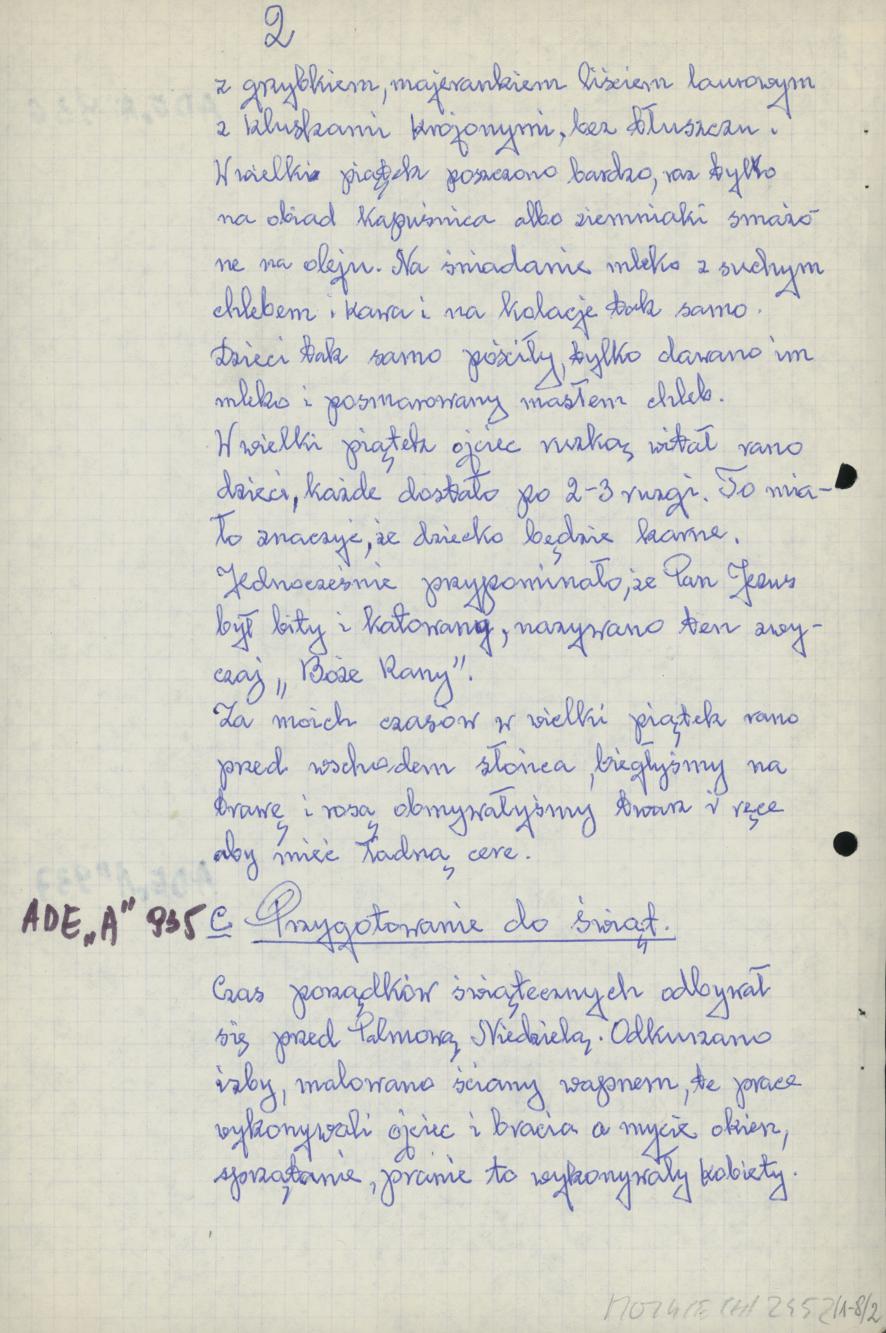 2
z grzybkiem, majerankiem liściem laurowym
z kluskami krojonymi, bez tłuszczu.
W wielki piątek poszczono bardzo, raz tylko
na obiad kapuśnica albo ziemniaki smażo
ne na oleju. Na śniadanie mleko z suchym
chlebem i kawa i na kolacje tak samo.
Dzieci tak samo pościły, tylko dawano im
mleko i posmarowany masłem chleb.
W wielki piątek ojciec ruzką witał rano
dzieci, każde dostało po 2-3 ruzgi. To mia-
ło znaczyć, że dziecko będzie karne.
Jednocześnie przypominało, że Pan Jezus
był bity i katowany, nazywano ten zwy-
czaj „Boże Rany".
Za moich czasów w wielki piątek rano
przed wschodem słońca, biegłyśmy na
trawę i rosą obmywałyśmy twarz i ręce
aby mieć ładną cere.
ADE „A" 935 C Przygotowanie do świąt.
Czas porządków świątecznych odbywał
się przed Palmową Niedzielą. Odkurzano
izby, malowano ściany wapnem, te prace
wykonywali ojciec i bracia a mycie okien,
sprzątanie, pranie to wykonywały kobiety.
2452/1-8/2